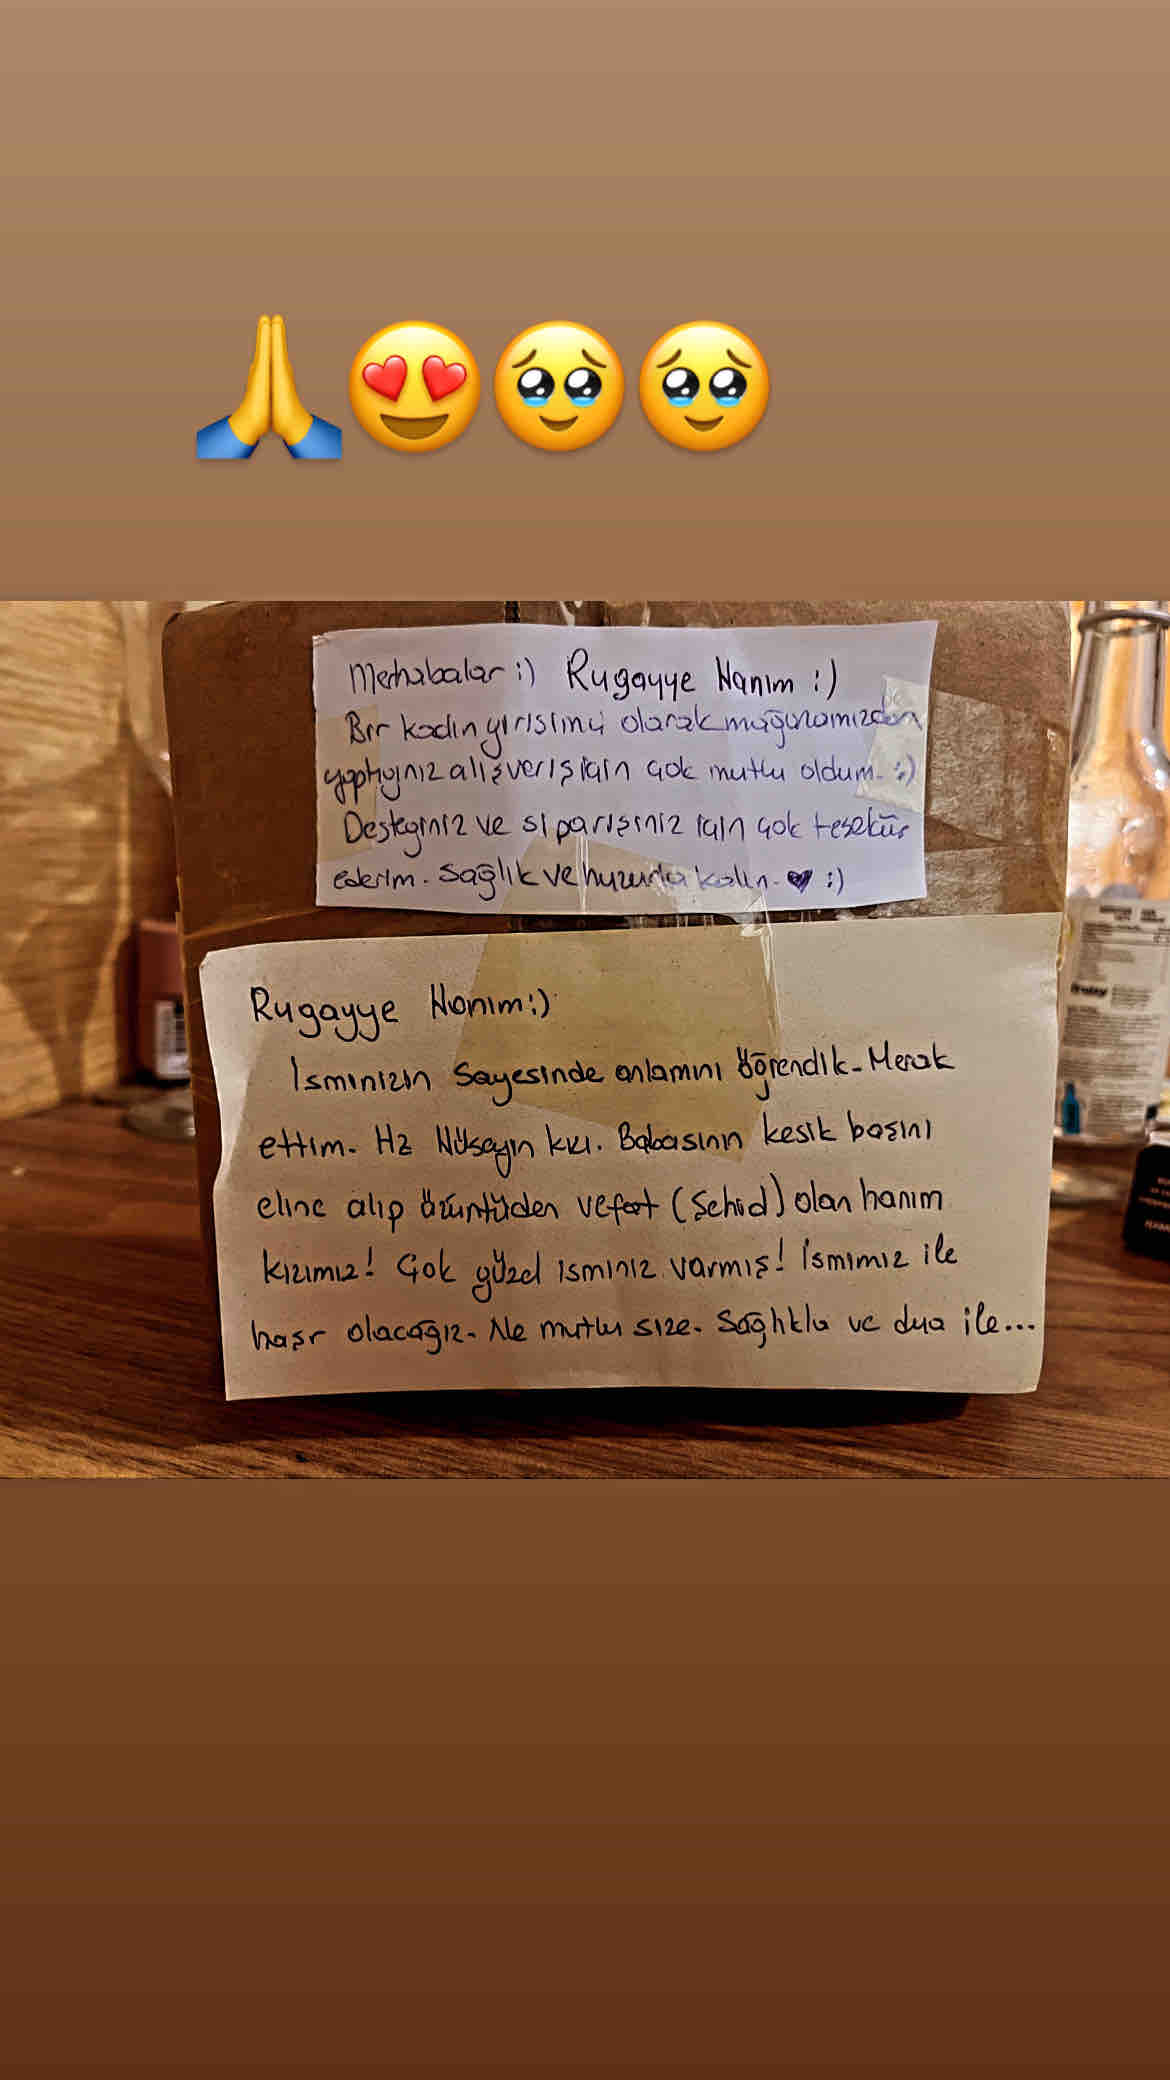 🙏😍🥹🥹
Merhabalar :) Rugayye Hanım :)
Bir kadın girişimci olarak mağazamızdan
yaptığınız alışveriş için çok mutlu oldum. :)
Desteğiniz ve siparişiniz için çok teşekür
ederim. Sağlık ve huzurla kalın. ♥ :)
Rugayye Hanım :)
İsminizin sayesinde anlamını öğrendik. Merak
ettim. Hz Hüseyin kızı. Babasının kesik başını
eline alıp üzüntüden vefat (Şehid) olan hanım
kızımız! Çok güzel isminiz varmış! İsmimiz ile
haşr olacağız. Ne mutlu size. Sağlıkla ve dua ile...